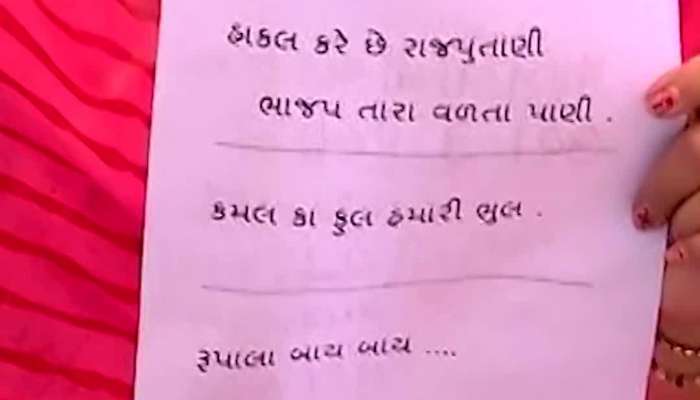 હાકલ કરે છે રાજપુતાણી
ભાજપ તારા વળતા પાણી .
કમલ કા ફુલ હમારી ભુલ .
રૂપાલા બાય બાય ....